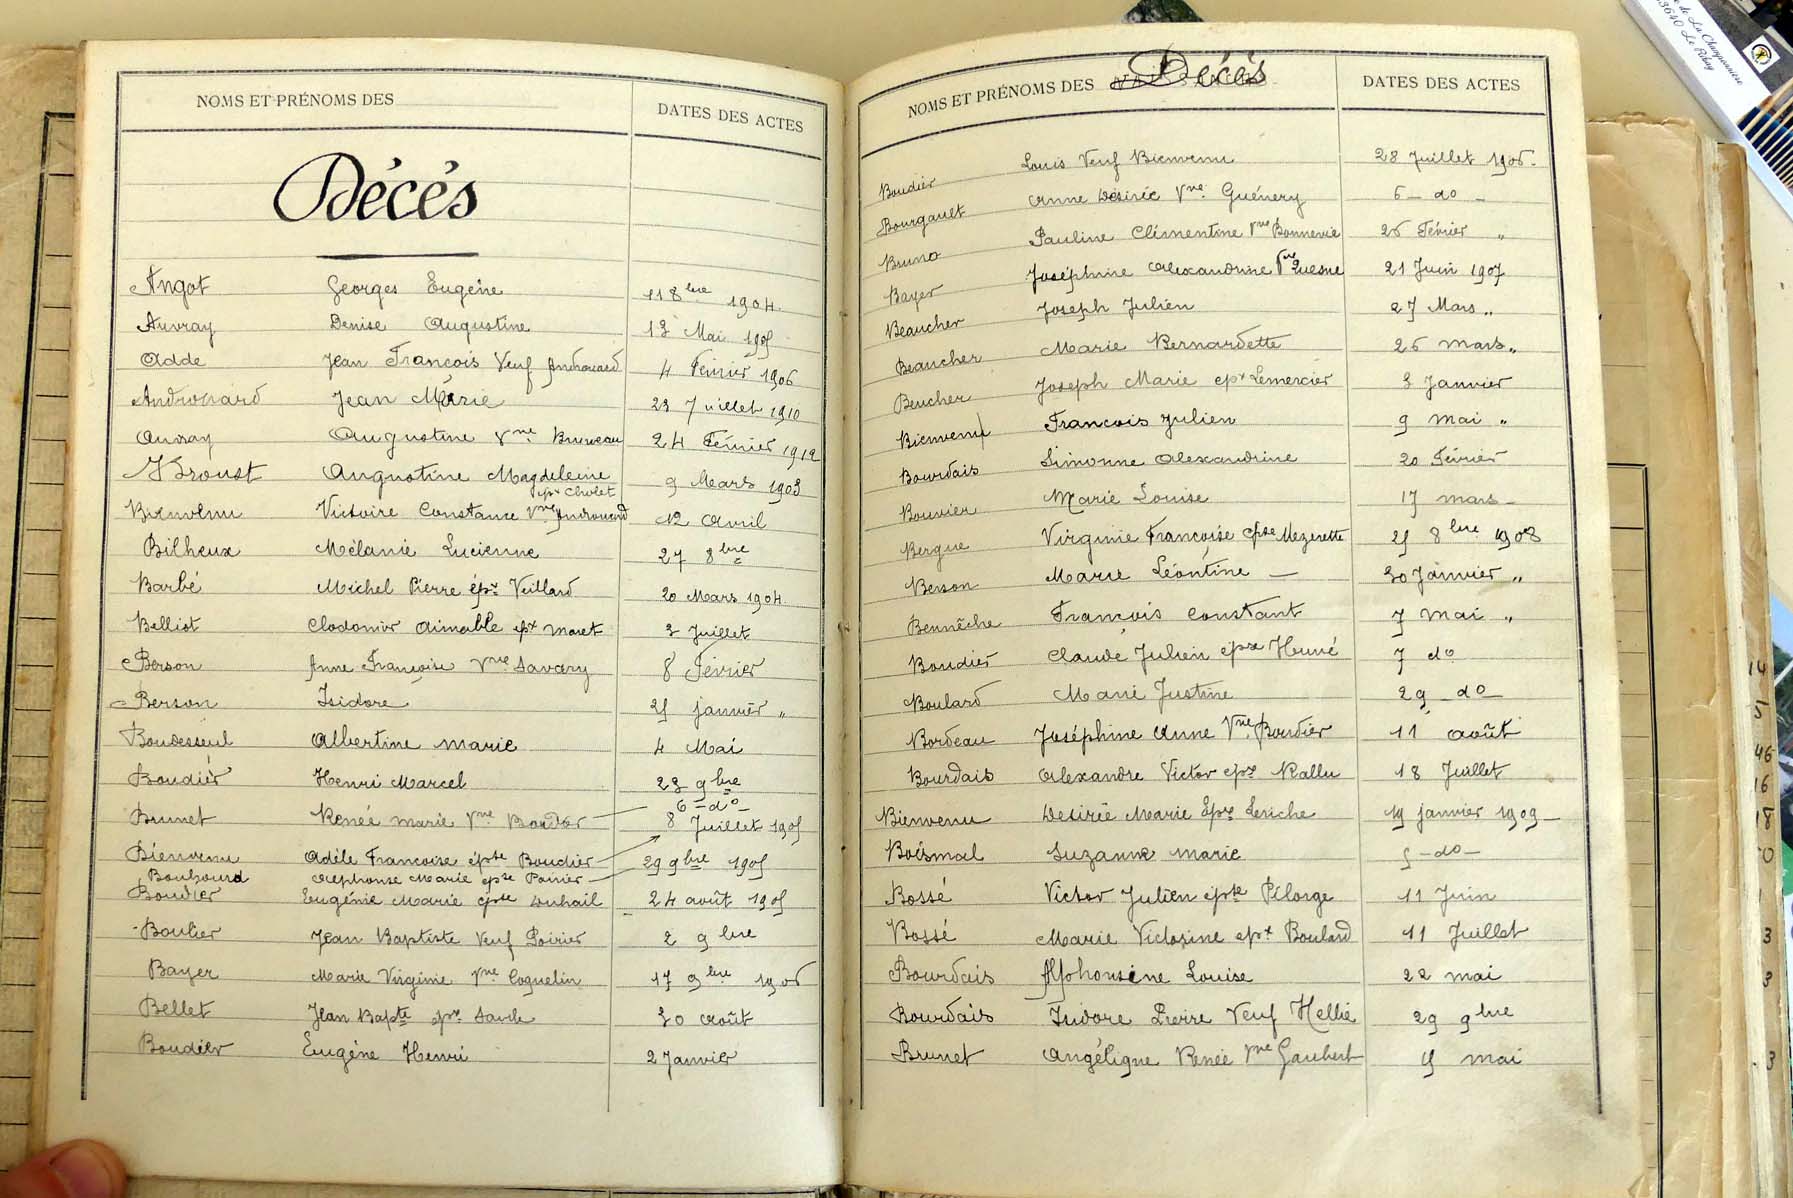 NOMS ET PRÉNOMS DES
DATES DES ACTES
Décés
Angot Georges Eugène 11 8bre 1904.
Auvray Denise Augustine 13 Mai 1905
Adde Jean François Veuf Androuard 4 Février 1906
Androuard Jean Marie 23 Juillet 1910
Auvray Augustine Vve Bruneau 24 Février 1912
Broust Augustine Magdeleine 9 Mars 1903
épx Cholet
Bienvenu Victoire Constance Vve Androuard 12 Avril
Bilheux Mélanie Lucienne 27 8bre
Barbé Michel Pierre épx Veillard 20 Mars 1904.
Belliot Clodomir Aimable épx Moret 3 Juillet
Berson Anne Françoise Vve Savary 8 Février
Berson Isidore 25 janvier "
Boudesseul Albertine Marie 4 Mai
Boudier Henri Marcel 23 9bre
6 - do -
Brunet Renée Marie Vve 8 Juillet 1905
Bienvenu Adèle Françoise épse Boudier 29 9bre 1905
Bouhourd Alphonse Marie épx Poirier
Boudier Eugénie Marie épse Duhail 24 août 1905
Boulier Jean Baptiste Veuf Poirier 2 9bre
Bayer Marie Virginie Vve Coquelin 17 9bre 1906
Bellet Jean Bapte épx 30 Août
Boudier Eugène Henri 2 Janvier
NOMS ET PRÉNOMS DES Décès
DATES DES ACTES
Boudier Louis Veuf Bienvenu 28 Juillet 1906.
Bourgault Anne Désirée Vve Guénery 6 - do -
Bruno Pauline Clémentine Vve Bonnevie 26 Février "
Bayer Joséphine Alexandrine Vve Quesne 21 Juin 1907
Beaucher Joseph Julien 27 Mars "
Beaucher Marie Bernardette 26 mars "
Beucher Joseph Marie épx Lemercier 3 Janvier
Bienvenu François Julien 9 mai "
Bourdais Simonne Alexandrine 20 Février
Bouvier Marie Louise 17 mars -
Bergue Virginie Françoise épse Mezerette 25 8bre 1908
Berson Marie Léontine - 30 Janvier "
Bennêche François Constant 7 mai "
Boudier Claude Julien épx 7 do
Boulard Marie Justine 29 - do -
Bordeau Joséphine Anne Vve Boudier 11 août
Bourdais Alexandre Victor épx Rallu 18 Juillet
Bienvenu Désirée Marie Epse Leriche 19 janvier 1909 -
Boismal Suzanne Marie 5 - do -
Bossé Victor Julien épx Pélorge 11 Juin
Bossé Marie Victorine épx Boulard 11 Juillet
Bourdais Alphonsine Louise 22 mai
Bourdais Isidore Pierre Veuf Hellié 29 9bre
Brunet Angélique Renée Vve Gaubert 15 mai